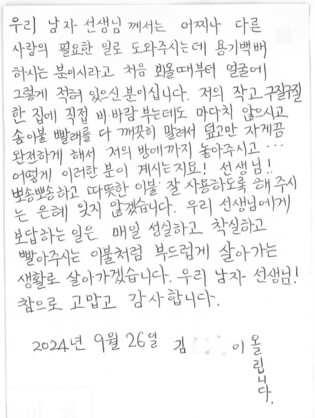 우리 남자 선생님 께서는 어찌나 다른
사람의 필요한 일로 도와주시는데 용기백배
하시는 분이시라고 처음 뵈올때부터 얼굴에
그렇게 적혀 있으신 분이십니다. 저의 작고 구질구질
한 집에 직접 비바람 부는데도 마다치 않으시고
솜이불 빨래를 다 깨끗히 말려서 덮고만 자게끔
완전하게 해서 저의 방에까지 놓아주시고…
어떻게 이러한 분이 계시는지요! 선생님!!
뽀송뽀송하고 따뜻한 이불 잘 사용하도록 해 주시
는 은혜 잊지 않겠습니다. 우리 선생님에게
보답하는 일은 매일 성실하고 착실하고
빨아주시는 이불처럼 부드럽게 살아가는
생활로 살아가겠습니다. 우리 남자 선생님!
참으로 고맙고 감사합니다.
2024년 9월 26일 김 이 올립니다.